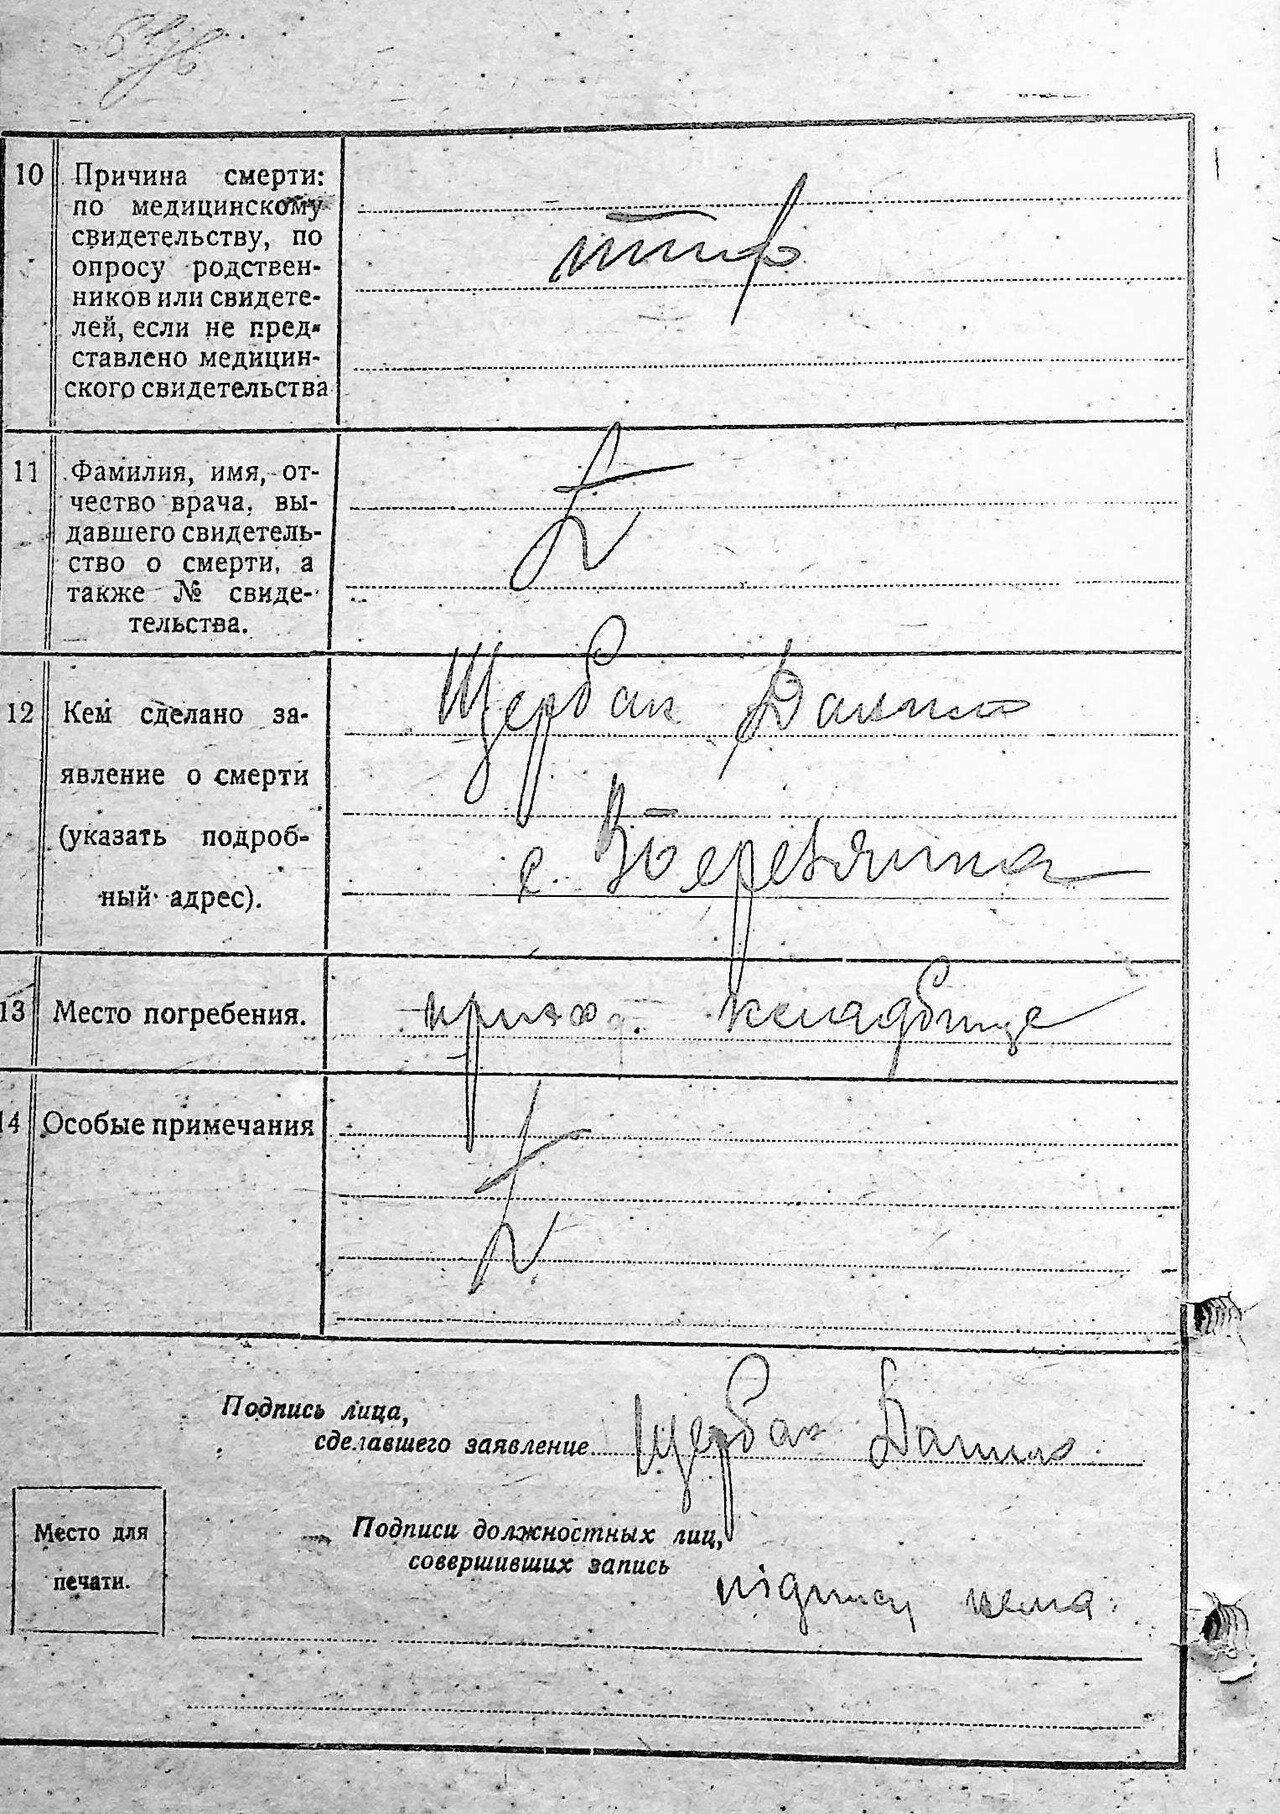 10 Причина смерти:
по медицинскому
свидетельству, по
опросу родствен-
ников или свидете-
лей, если не пред-
ставлено медицин-
ского свидетельства
тиф
11 Фамилия, имя, от-
чество врача, вы-
давшего свидетель-
ство о смерти, а
также № свиде-
тельства.
12 Кем сделано за-
явление о смерти
(указать подроб-
ный адрес).
Щербак Данило
с.
13 Место погребения.
приход. кладбище
14 Особые примечания
Подпись лица,
сделавшего заявление Щербак Данило
Место для
печати.
Подписи должностных лиц,
совершивших запись
підпису нема.